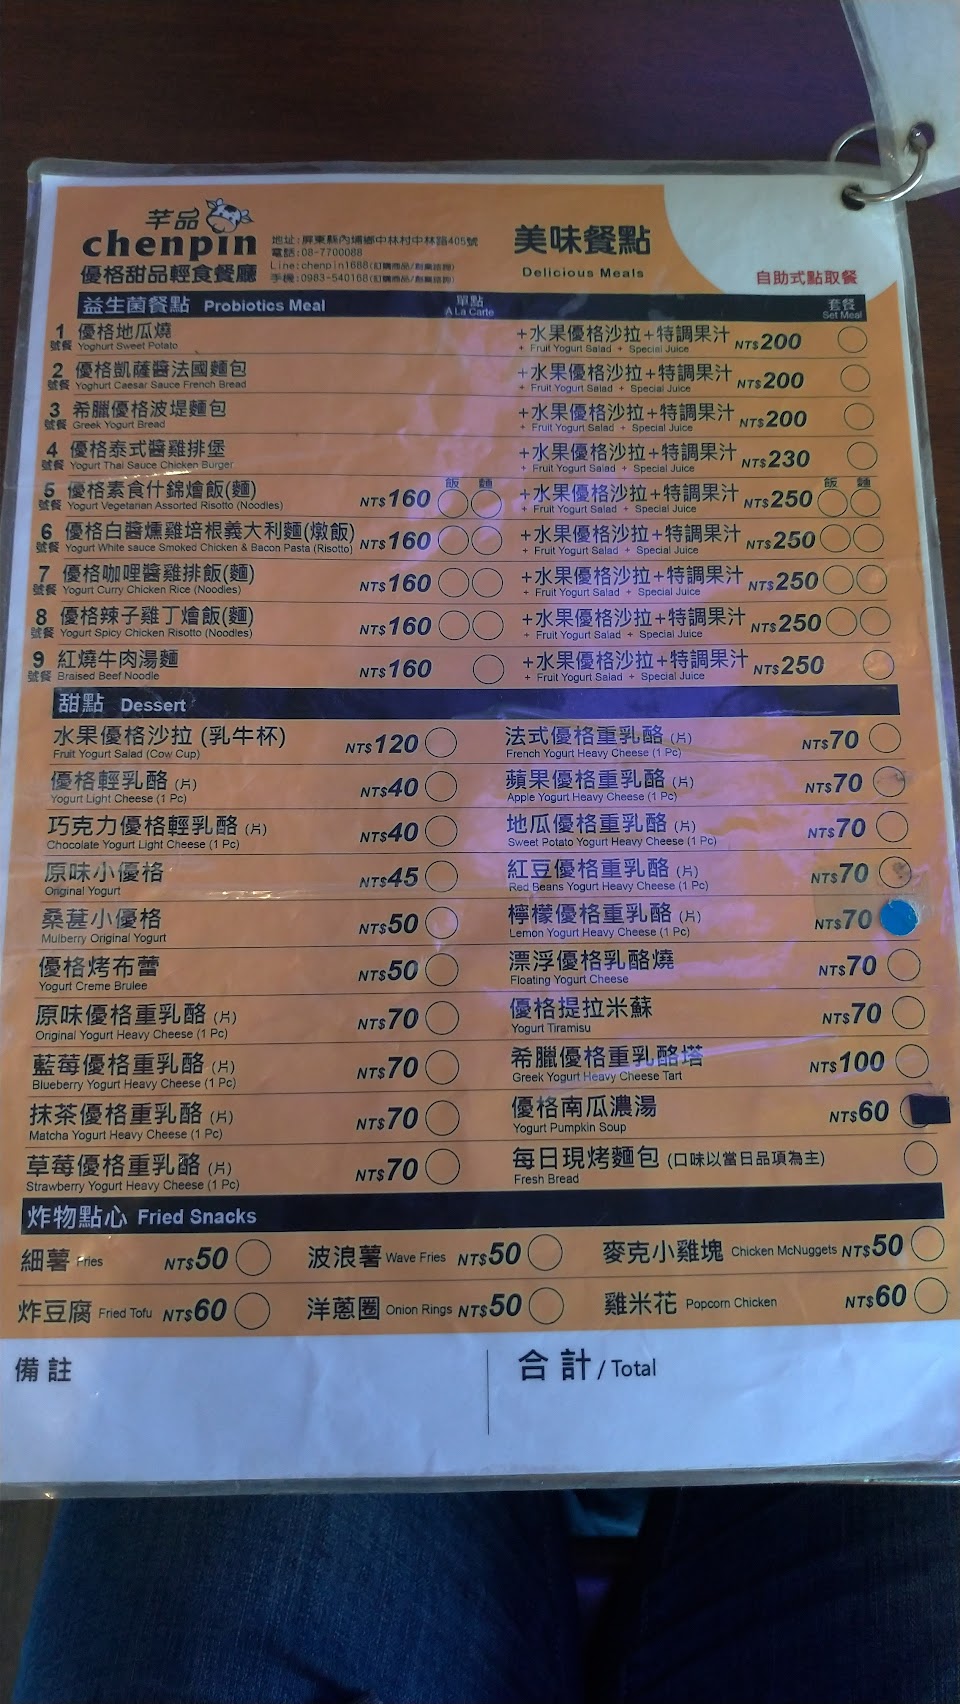 芊品
chenpin
優格甜品輕食餐廳
地址:屏東縣內埔鄉中林村中林路405號
電話:08-7700088
Line:chenpin1688(訂購商品/創業諮詢)
手機:0983-540168(訂購商品/創業諮詢)
美味餐點
Delicious Meals
自助式點取餐
益生菌餐點 Probiotics Meal 單點 套餐
A La Carte Set Meal
1 優格地瓜燒 +水果優格沙拉+特調果汁 NT$200
號餐 Yoghurt Sweet Potato + Fruit Yogurt Salad + Special Juice
2 優格凱薩醬法國麵包 +水果優格沙拉+特調果汁 NT$200
號餐 Yoghurt Caesar Sauce French Bread + Fruit Yogurt Salad + Special Juice
3 希臘優格波堤麵包 +水果優格沙拉+特調果汁 NT$200
號餐 Greek Yogurt Bread + Fruit Yogurt Salad + Special Juice
4 優格泰式醬雞排堡 +水果優格沙拉+特調果汁 NT$230
號餐 Yogurt Thai Sauce Chicken Burger + Fruit Yogurt Salad + Special Juice
飯 麵 飯 麵
5 優格素食什錦燴飯(麵) NT$160 +水果優格沙拉+特調果汁 NT$250
號餐 Yogurt Vegetarian Assorted Risotto (Noodles) + Fruit Yogurt Salad + Special Juice
6 優格白醬燻雞培根義大利麵(燉飯) NT$160 +水果優格沙拉+特調果汁 NT$250
號餐 Yogurt White sauce Smoked Chicken & Bacon Pasta (Risotto) + Fruit Yogurt Salad + Special Juice
7 優格咖哩醬雞排飯(麵) NT$160 +水果優格沙拉+特調果汁 NT$250
號餐 Yogurt Curry Chicken Rice (Noodles) + Fruit Yogurt Salad + Special Juice
8 優格辣子雞丁燴飯(麵) NT$160 +水果優格沙拉+特調果汁 NT$250
號餐 Yogurt Spicy Chicken Risotto (Noodles) + Fruit Yogurt Salad + Special Juice
9 紅燒牛肉湯麵 NT$160 +水果優格沙拉+特調果汁 NT$250
號餐 Braised Beef Noodle + Fruit Yogurt Salad + Special Juice
甜點 Dessert
水果優格沙拉 (乳牛杯) NT$120
Fruit Yogurt Salad (Cow Cup)
優格輕乳酪 (片) NT$40
Yogurt Light Cheese (1 Pc)
巧克力優格輕乳酪 (片) NT$40
Chocolate Yogurt Light Cheese (1 Pc)
原味小優格 NT$45
Original Yogurt
桑葚小優格 NT$50
Mulberry Original Yogurt
優格烤布蕾 NT$50
Yogurt Creme Brulee
原味優格重乳酪 (片) NT$70
Original Yogurt Heavy Cheese (1 Pc)
藍莓優格重乳酪 (片) NT$70
Blueberry Yogurt Heavy Cheese (1 Pc)
抹茶優格重乳酪 (片) NT$70
Matcha Yogurt Heavy Cheese (1 Pc)
草莓優格重乳酪 (片) NT$70
Strawberry Yogurt Heavy Cheese (1 Pc)
法式優格重乳酪 (片) NT$70
French Yogurt Heavy Cheese (1 Pc)
蘋果優格重乳酪 (片) NT$70
Apple Yogurt Heavy Cheese (1 Pc)
地瓜優格重乳酪 (片) NT$70
Sweet Potato Yogurt Heavy Cheese (1 Pc)
紅豆優格重乳酪 (片) NT$70
Red Beans Yogurt Heavy Cheese (1 Pc)
檸檬優格重乳酪 (片) NT$70
Lemon Yogurt Heavy Cheese (1 Pc)
漂浮優格乳酪燒 NT$70
Floating Yogurt Cheese
優格提拉米蘇 NT$70
Yogurt Tiramisu
希臘優格重乳酪塔 NT$100
Greek Yogurt Heavy Cheese Tart
優格南瓜濃湯 NT$60
Yogurt Pumpkin Soup
每日現烤麵包 (口味以當日品項為主)
Fresh Bread
炸物點心 Fried Snacks
細薯 Fries NT$50 波浪薯 Wave Fries NT$50 麥克小雞塊 Chicken McNuggets NT$50
炸豆腐 Fried Tofu NT$60 洋蔥圈 Onion Rings NT$50 雞米花 Popcorn Chicken NT$60
備註 合計 / Total